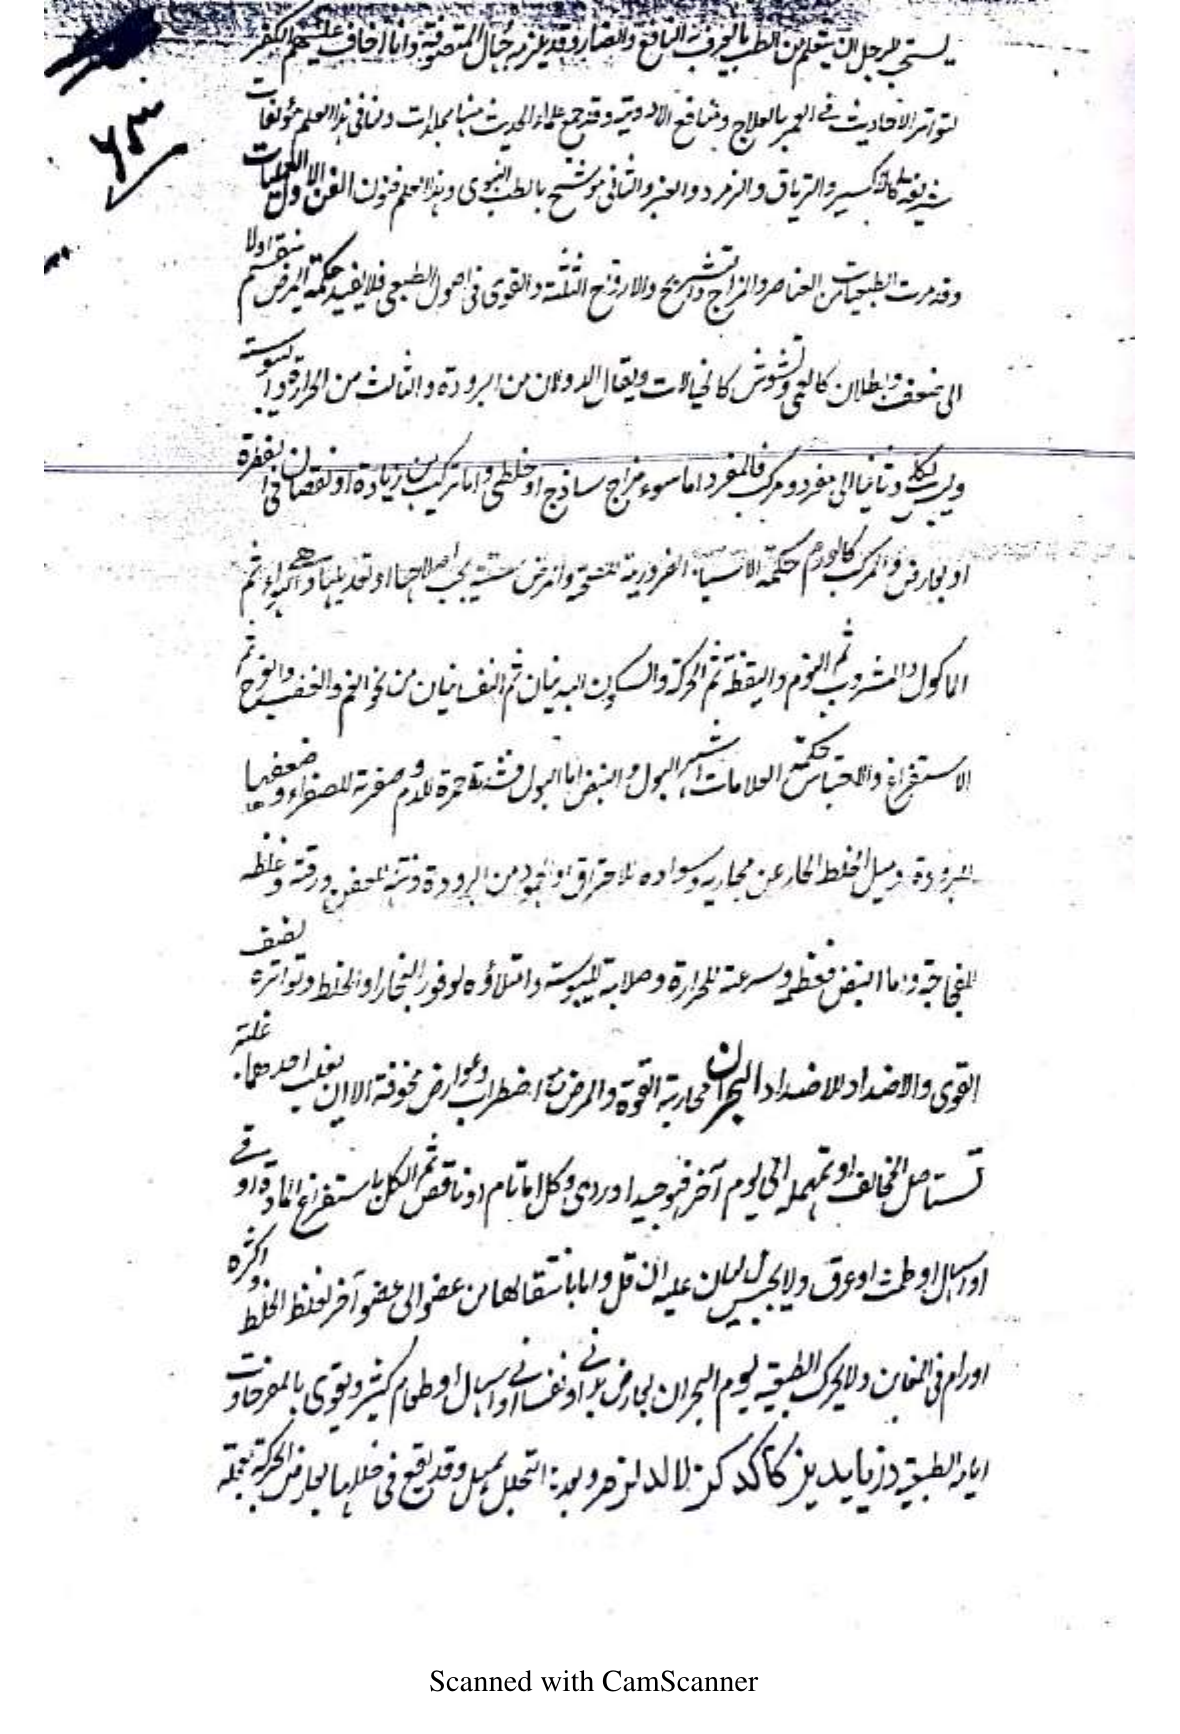 يستحب للرجل ان يتعلم من الطب ما يعرف به النافع والضار وقد يلزمه جهال المتصوفة وانا اخاف عليهم الكفر
لتواتر الاحاديث في الامر بالعلاج ومنافع الادوية وقد جمع علماء الحديث منها مجلدات ولنا في هذا العلم مؤلفات
شريفة كالاكسير والترياق والزمرد والعنبر والثاني موشح بالطب النبوي وهذا العلم فنون الفن الاول العمليات
۶۳
وقد مرت الطبيعيات من العناصر والمزاج والتشريح والارواح الثلثة والقوى في اصول الطبعي فلا نفيد حكمة المرض ينقسم اولا
الى ضعف وبطلان كالعمى وتشوش كالخيالات ويقال الاولان من البرودة والثالث من الحرارة واليبوسة
وليس بكلي وثانيا الى مفرد ومركب فالمفرد اما سوء مزاج ساذج او خلطي واما تركيب من زيادة او نقصان في الفطرة
او بعارض والمركب كالورم حكمة الاسباب الضرورية للصحة والمرض ستة يجب اصلاحها او تعديلها وهي الهواء ثم
الماكول والمشروب ثم النوم واليقظة ثم الحركة والسكون البدنيان ثم النفسانيان من نحو الغم والغضب والفرح ثم
الاستفراغ والاحتباس حكمة العلامات اشهر البول والنبض اما البول فشدة حمرة للدم وصفرته للصفراء وضعفها
للبرودة وميل الخلط الحار عن مجاريه وسواده للاحتراق او الجمود من البرودة ونتنه للعفن ورقته وغلظه
للفجاجة واما النبض فعظمه وسرعته للحرارة وصلابته لليبوسة وامتلاؤه لوفور البخار او الخلط وتواتره لضعف
القوى والاضداد للاضداد البحران محاربة القوة والمرض مع اضطراب وعوارض مخوفة الا ان يغلب احدهما غلبة
تستاصل المخالف او تمهله الى يوم آخر فهو جيد او ردي وكل اما تام او ناقص ثم الكل باستفراغ المادة او قي
او اسهال او طمث او عرق ولا يحبس بل يعان عليه ان قل واما بانتقالها من عضو الى عضو آخر لغلظ الخلط واكثره
اورام في المغابن ولا يحرك الطبيعة يوم البحران بعارض بدني او نفساني او اسهال او طعام كثير ويقوى بالمفرحات
ايام الطبيعة وقد يقع في خلالها بعارض الحركة بعجلة
Scanned with CamScanner